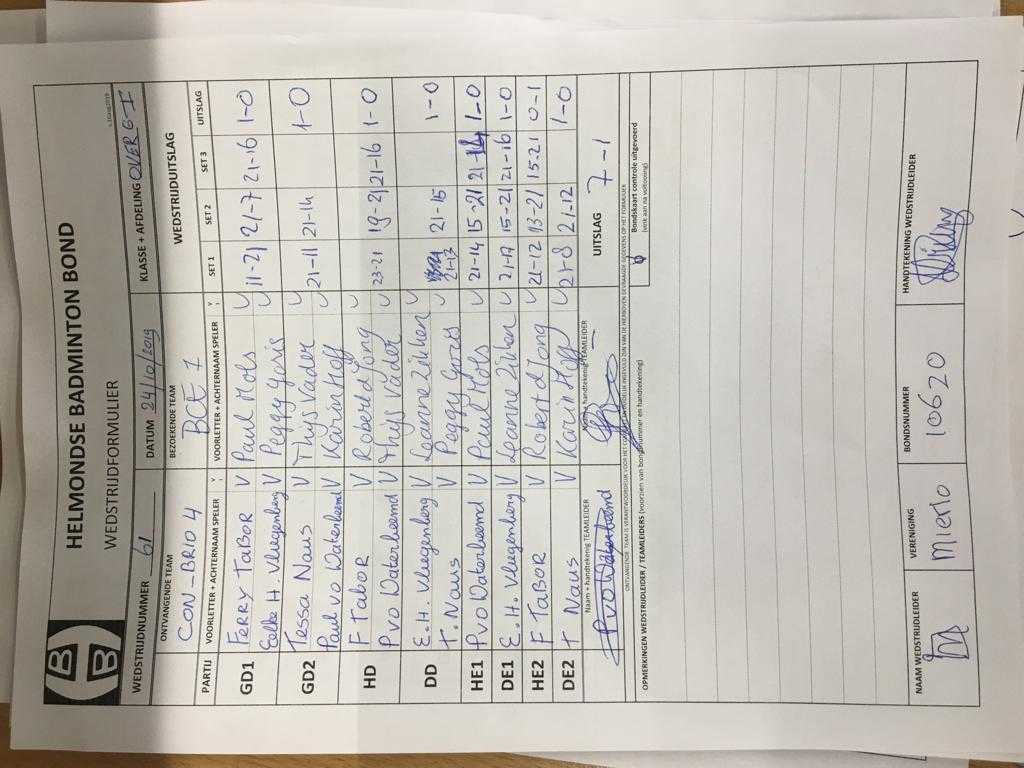 HELMONDSE BADMINTON BOND
WEDSTRIJDFORMULIER
WEDSTRIJDNUMMER 61 DATUM 24/10/2019 KLASSE + AFDELING OVERG-I
ONTVANGENDE TEAM BEZOEKENDE TEAM WEDSTRIJDUITSLAG
CON-BRIO 4 BCE 1
PARTIJ VOORLETTER + ACHTERNAAM SPELER V VOORLETTER + ACHTERNAAM SPELER V SET 1 SET 2 SET 3 UITSLAG
GD1 FERRY TABOR V Paul Mols V 11-21 21-7 21-16 1-0
Eelke H. Vliegenberg V Peggy Goris V
GD2 Tessa Naus V Thijs Vader V 21-11 21-14 1-0
Paul vo Waterbeemd V Karin Hoff V
HD F Tabor V Robert d Jong V 23-21 19-21 21-16 1-0
P vo Waterbeemd V Thijs Vader V
DD E.H. Vliegenberg V Leanne Zikken V 21-13 21-15 1-0
T. Naus V Peggy Goris V
HE1 P vo Waterbeemd V Paul Mols V 21-14 15-21 21-14 1-0
DE1 E.H. Vliegenberg V Leanne Zikken V 21-17 15-21 21-16 1-0
HE2 F TABOR V Robert d Jong V 21-12 13-21 15-21 0-1
DE2 T Naus V Karin Hoff V 21-8 21-12 1-0
Naam + handtekening TEAMLEIDER Naam + handtekening TEAMLEIDER UITSLAG 7-1
P vo Waterbeemd
OPMERKINGEN WEDSTRIJDLEIDER / TEAMLEIDERS (voorzien van bondsnummer en handtekening) V Bondskaart controle uitgevoerd
(vink aan na voltooiing)
NAAM WEDSTRIJDLEIDER VERENIGING BONDSNUMMER HANDTEKENING WEDSTRIJDLEIDER
Mierlo 10620